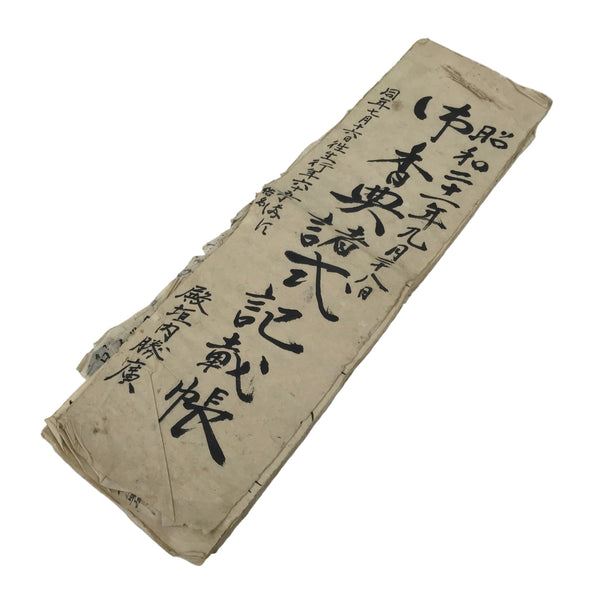 昭和二十一年九月廿八日
御香典諸式記載帳
同年七月十六日往生行年六十
殿垣内勝廣